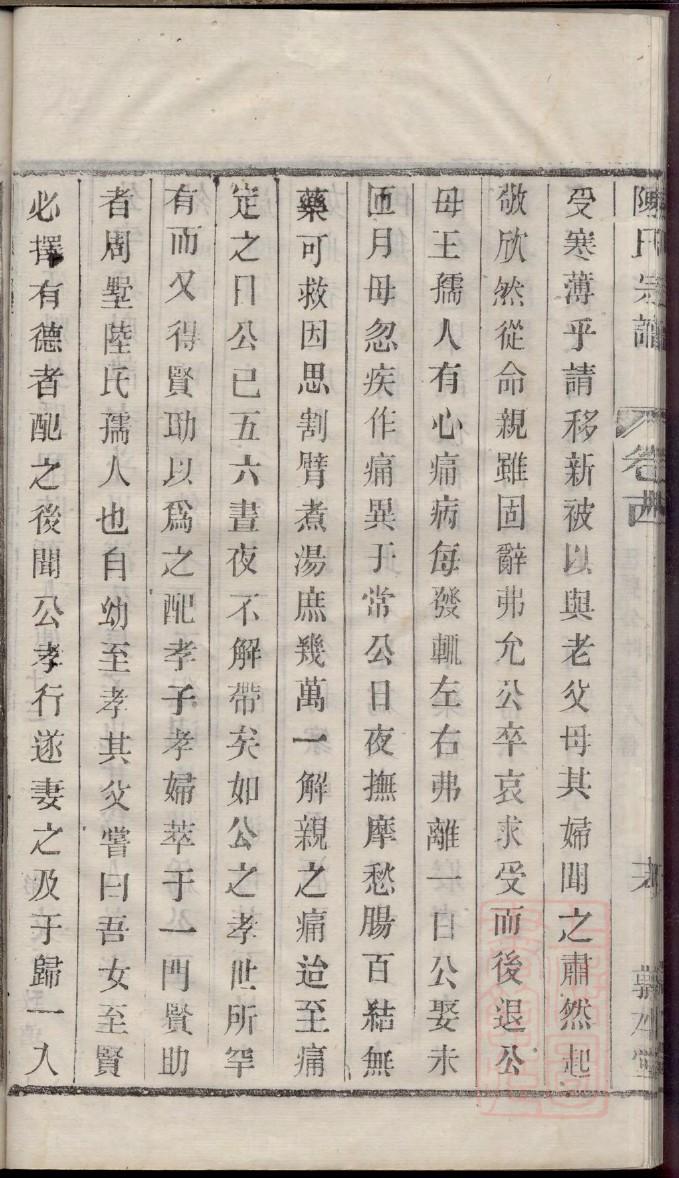 陳氏宗譜
卷
受寒薄乎請移新被以與老父母其婦聞之肅然起
敬欣然從命親雖固辭弗允公卒哀求受而後退公
母王孺人有心痛病每發輒左右弗離一日公娶未
匝月母忽疾作痛異于常公日夜撫摩愁腸百結無
藥可救因思割臂煮湯庶幾萬一解親之痛迨至痛
定之日公已五六晝夜不解帶矣如公之孝世所罕
有而又得賢助以爲之配孝子孝婦萃于一門賢助
者周墅陸氏孺人也自幼至孝其父嘗曰吾女至賢
必擇有德者配之後聞公孝行遂妻之及于歸一入